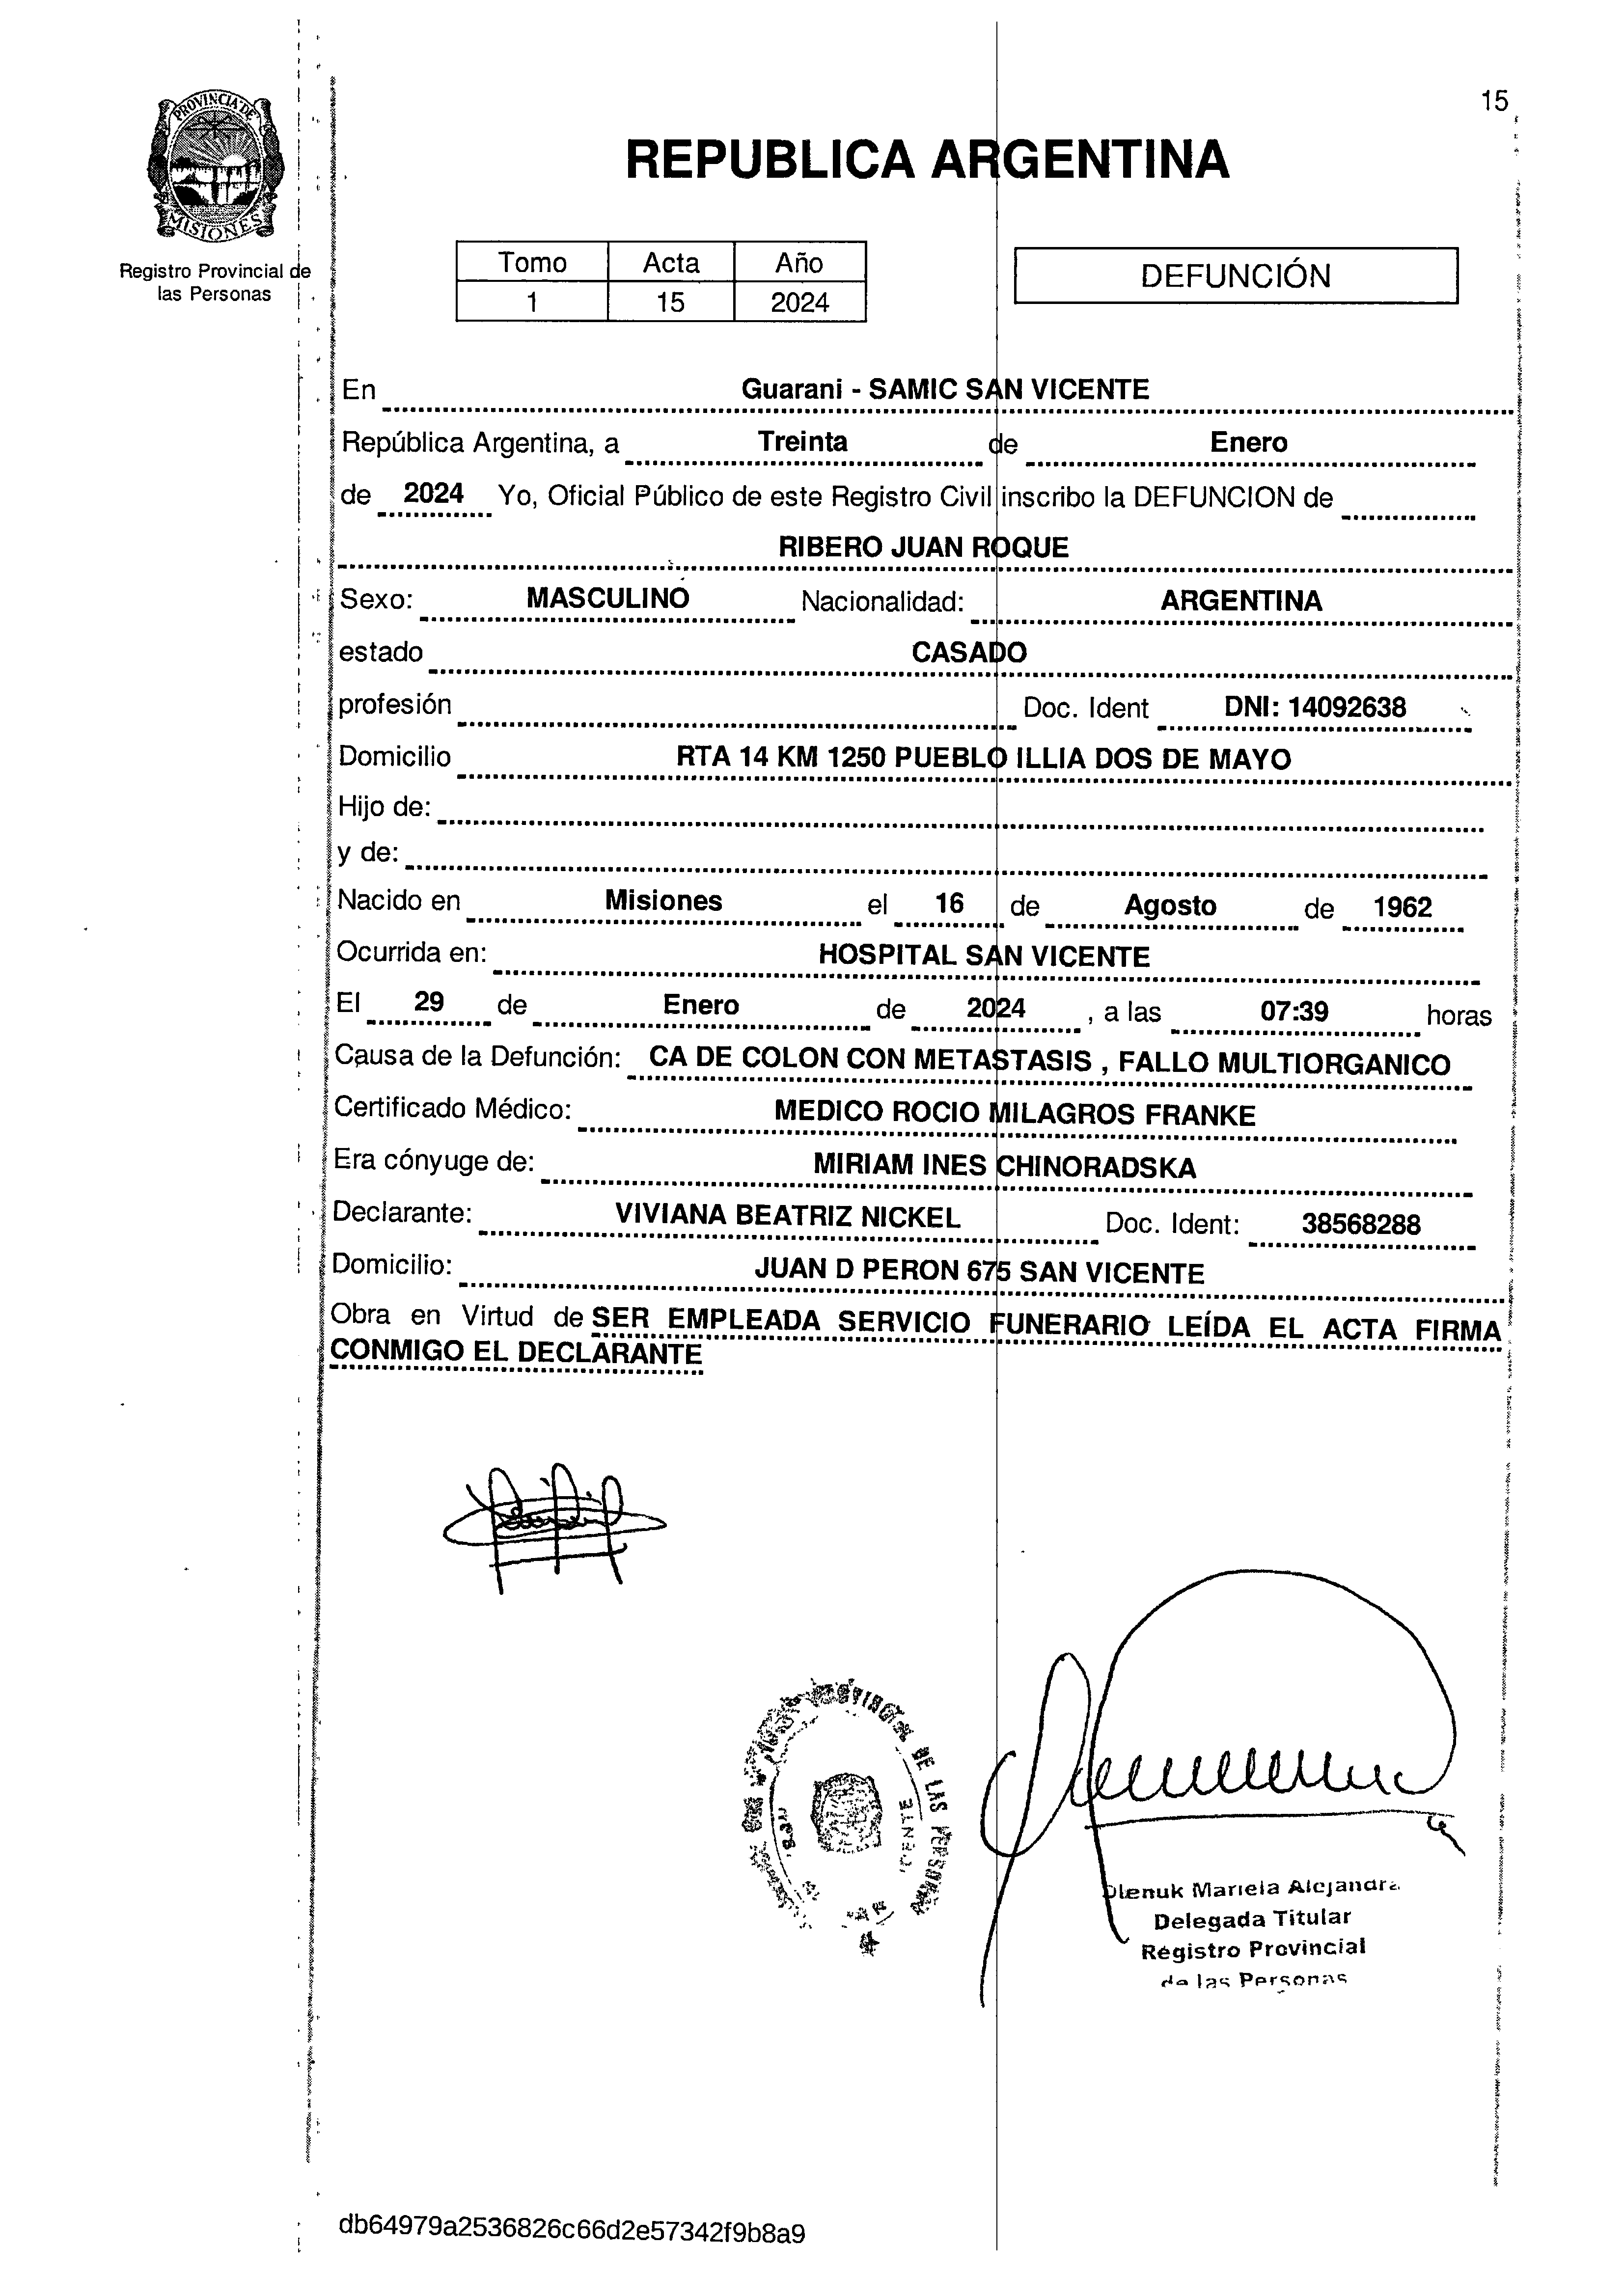 15
PROVINCIA DE
MISIONES
Registro Provincial de
las Personas
REPUBLICA ARGENTINA
Tomo Acta Año
1 15 2024
DEFUNCIÓN
En Guarani - SAMIC SAN VICENTE
República Argentina, a Treinta de Enero
de 2024 Yo, Oficial Público de este Registro Civil inscribo la DEFUNCION de
RIBERO JUAN ROQUE
Sexo: MASCULINO Nacionalidad: ARGENTINA
estado CASADO
profesión Doc. Ident DNI: 14092638
Domicilio RTA 14 KM 1250 PUEBLO ILLIA DOS DE MAYO
Hijo de:
y de:
Nacido en Misiones el 16 de Agosto de 1962
Ocurrida en: HOSPITAL SAN VICENTE
El 29 de Enero de 2024 , a las 07:39 horas
Causa de la Defunción: CA DE COLON CON METASTASIS , FALLO MULTIORGANICO
Certificado Médico: MEDICO ROCIO MILAGROS FRANKE
Era cónyuge de: MIRIAM INES CHINORADSKA
Declarante: VIVIANA BEATRIZ NICKEL Doc. Ident: 38568288
Domicilio: JUAN D PERON 675 SAN VICENTE
Obra en Virtud de SER EMPLEADA SERVICIO FUNERARIO LEÍDA EL ACTA FIRMA
CONMIGO EL DECLARANTE
DE LAS
Mariela Alejandra
Delegada Titular
Registro Provincial
de las Personas
db64979a2536826c66d2e57342f9b8a9